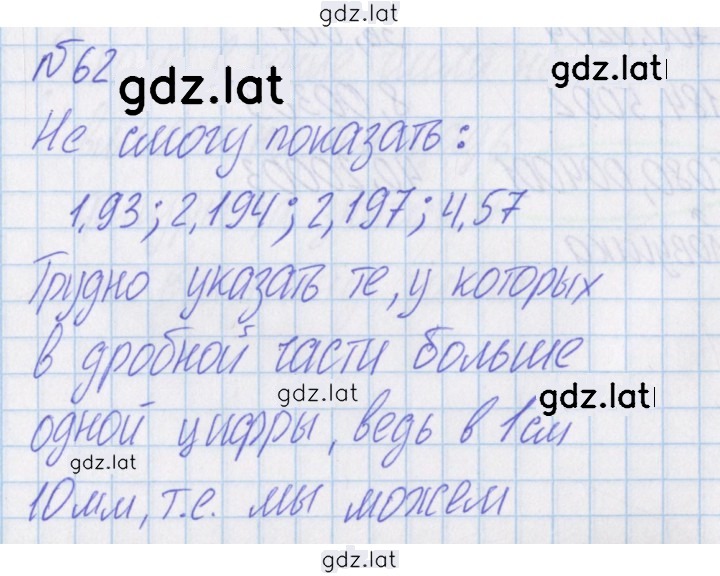 gdz.lat
№62
gdz.lat
gdz.lat
Не смогу показать:
1,93; 2,194; 2,197; 4,57
Трудно указать те, у которых
в дробной части больше
gdz.lat
gdz.lat
одной цифры, ведь в 1см
gdz.lat
10мм, т.е. мы можем
gdz.lat